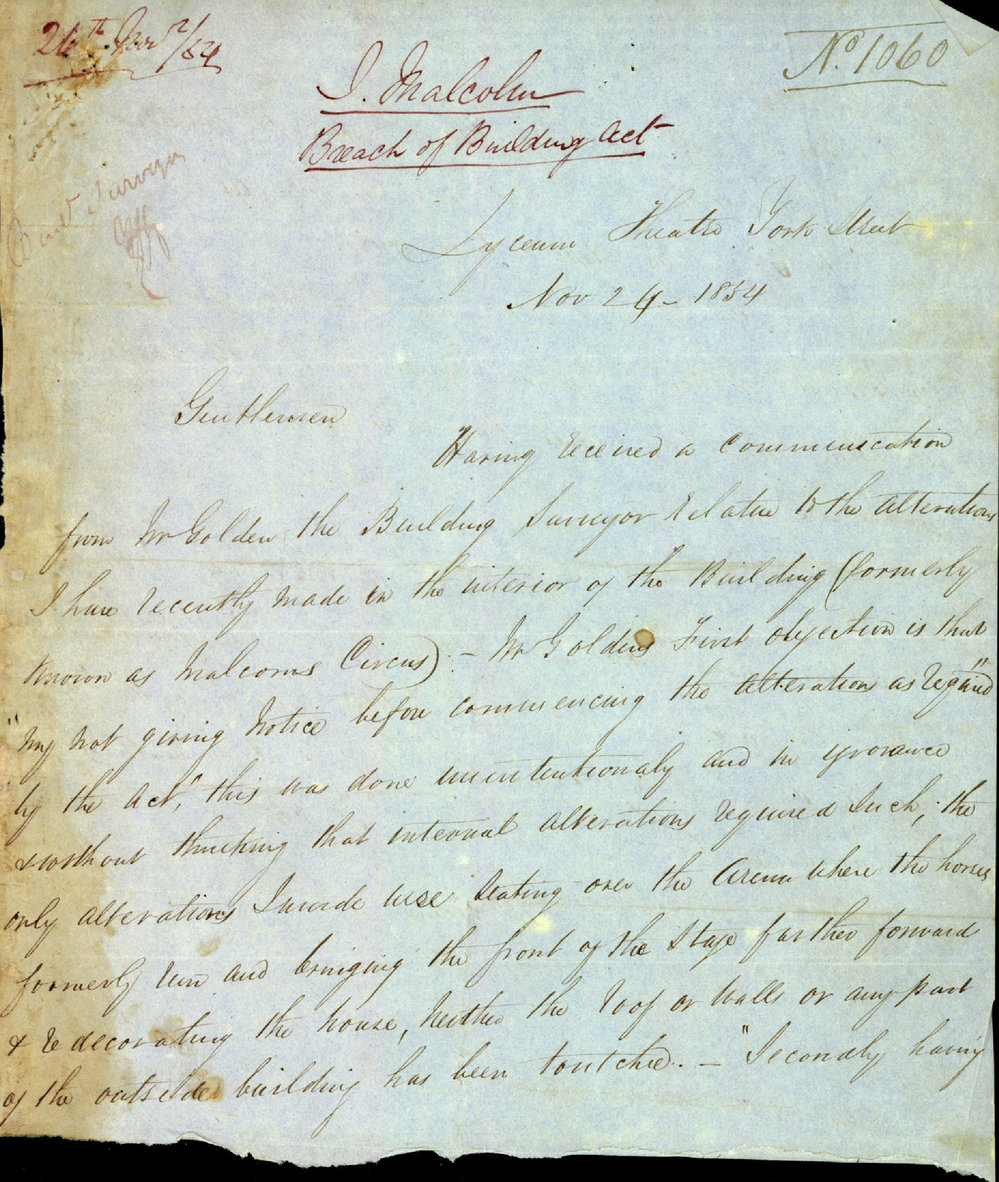 24th Novr/54
No. 1060
J. Malcolm
Breach of Building Act
Surveyor
Lyceum Theatre York Street
Nov 24 - 1854
Gentlemen
Having received a communication
from Mr Golden the Building Surveyor relative to the alterations
I have recently made in the interior of the Building (formerly
known as Malcoms Circus) - Mr Goldens First objection is that
"my not giving notice before commencing the alterations as required"
by the Act," this was done unintentionaly and in ignorance
& without thinking that internal alterations required such; the
only alterations I made were seating over the Arena where the horses
formerly run and bringing the front of the stage farther forward
& redecorating the house, neither the roof or walls or any part
of the outside building has been toutched. - "Secondly having